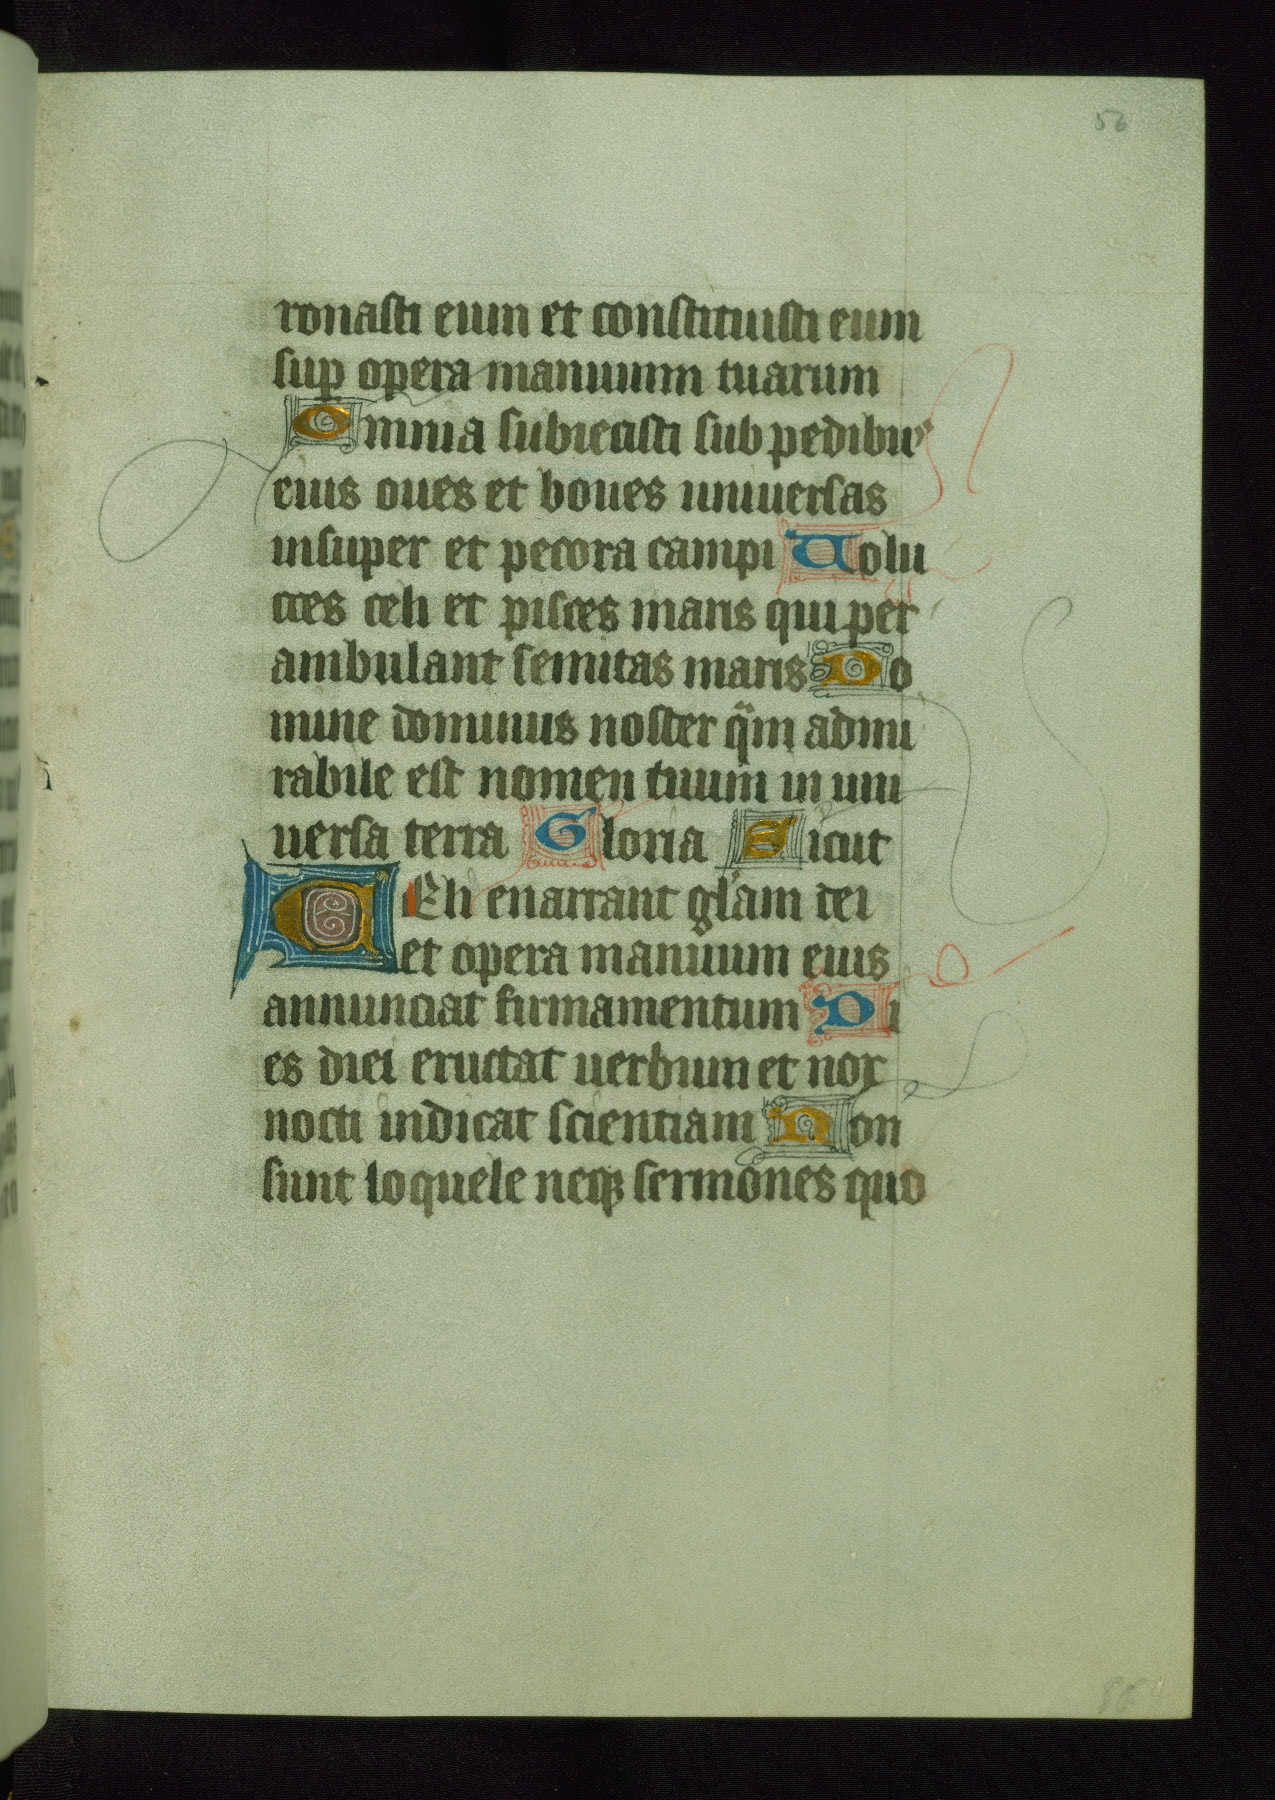 56
ronasti eum et constituisti eum
sup opera manuum tuarum
Omnia subiecisti sub pedibus
eius oues et boues uniuersas
insuper et pecora campi Uolu
cres celi et pisces maris qui per
ambulant semitas maris Do
mine dominus noster qm admi
rabile est nomen tuum in uni
uersa terra Gloria Sicut
CEli enarrant glam dei
et opera manuum eius
annunciat firmamentum Di
es diei eructat uerbum et nox
nocti indicat scientiam Non
sunt loquele neqz sermones quo